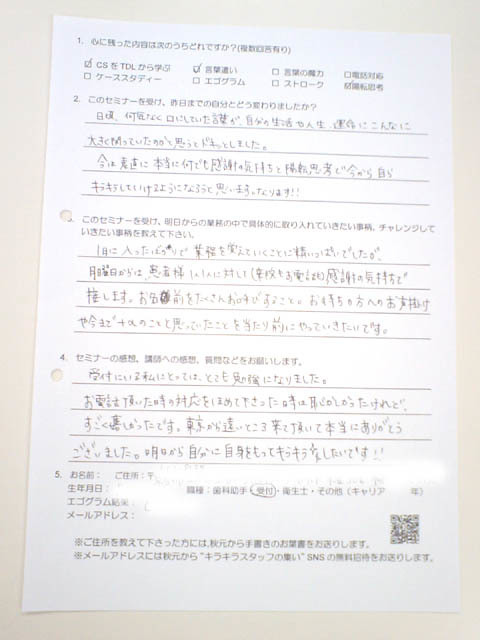 1. 心に残った内容は次のうちどれですか？(複数回答有り)
☑ CSをTDLから学ぶ ☑ 言葉遣い □ 言葉の魔力 □電話対応
□ ケーススタディー □ エゴグラム □ ストローク ☑陽転思考
2. このセミナーを受け、昨日までの自分とどう変わりましたか？
日頃、何底なく口にしていた言葉が、自分の生活や人生、運命にこんなに
大きく関っていたのかと思うとドキッとしました。
今は素直に本当に何でも感謝の気持ちと陽転思考で今から自ら
キラキラしていけるようになろうと思います。なります!!
このセミナーを受け、明日からの業務の中で具体的に取り入れていきたい事柄、チャレンジして
いきたい事柄を教えて下さい。
1月に入ったばかりで業務を覚えていくことに精いっぱいでしたが、
月曜日からは、患者様1人1人に対して(来校もお電話も)感謝の気持ちで
接します。お名前をたくさんお呼びすること。お待ちの方へのお声掛け
や今まで+αのことと思っていたことを当たり前にやっていきたいです。
4. セミナーの感想、講師への感想、質問などをお願いします。
受付にいる私にとっては、とても勉強になりました。
お電話頂いた時の対応をほめて下さった時は恥ずかしかったけれど、
すごく嬉しかったです。東京から遠いところ来て頂いて本当にありがとう
ございました。明日から自分に自身をもってキラキラしたいです!!
5. お名前： ご住所：〒
生年月日： 職種：歯科助手・受付・衛生士・その他（キャリア 年）
エゴグラム結果：
メールアドレス：
※ご住所を教えて下さった方には、秋元から手書きのお葉書をお送りします。
※メールアドレスには秋元から“キラキラスタッフの集い”SNSの無料招待をお送りします。